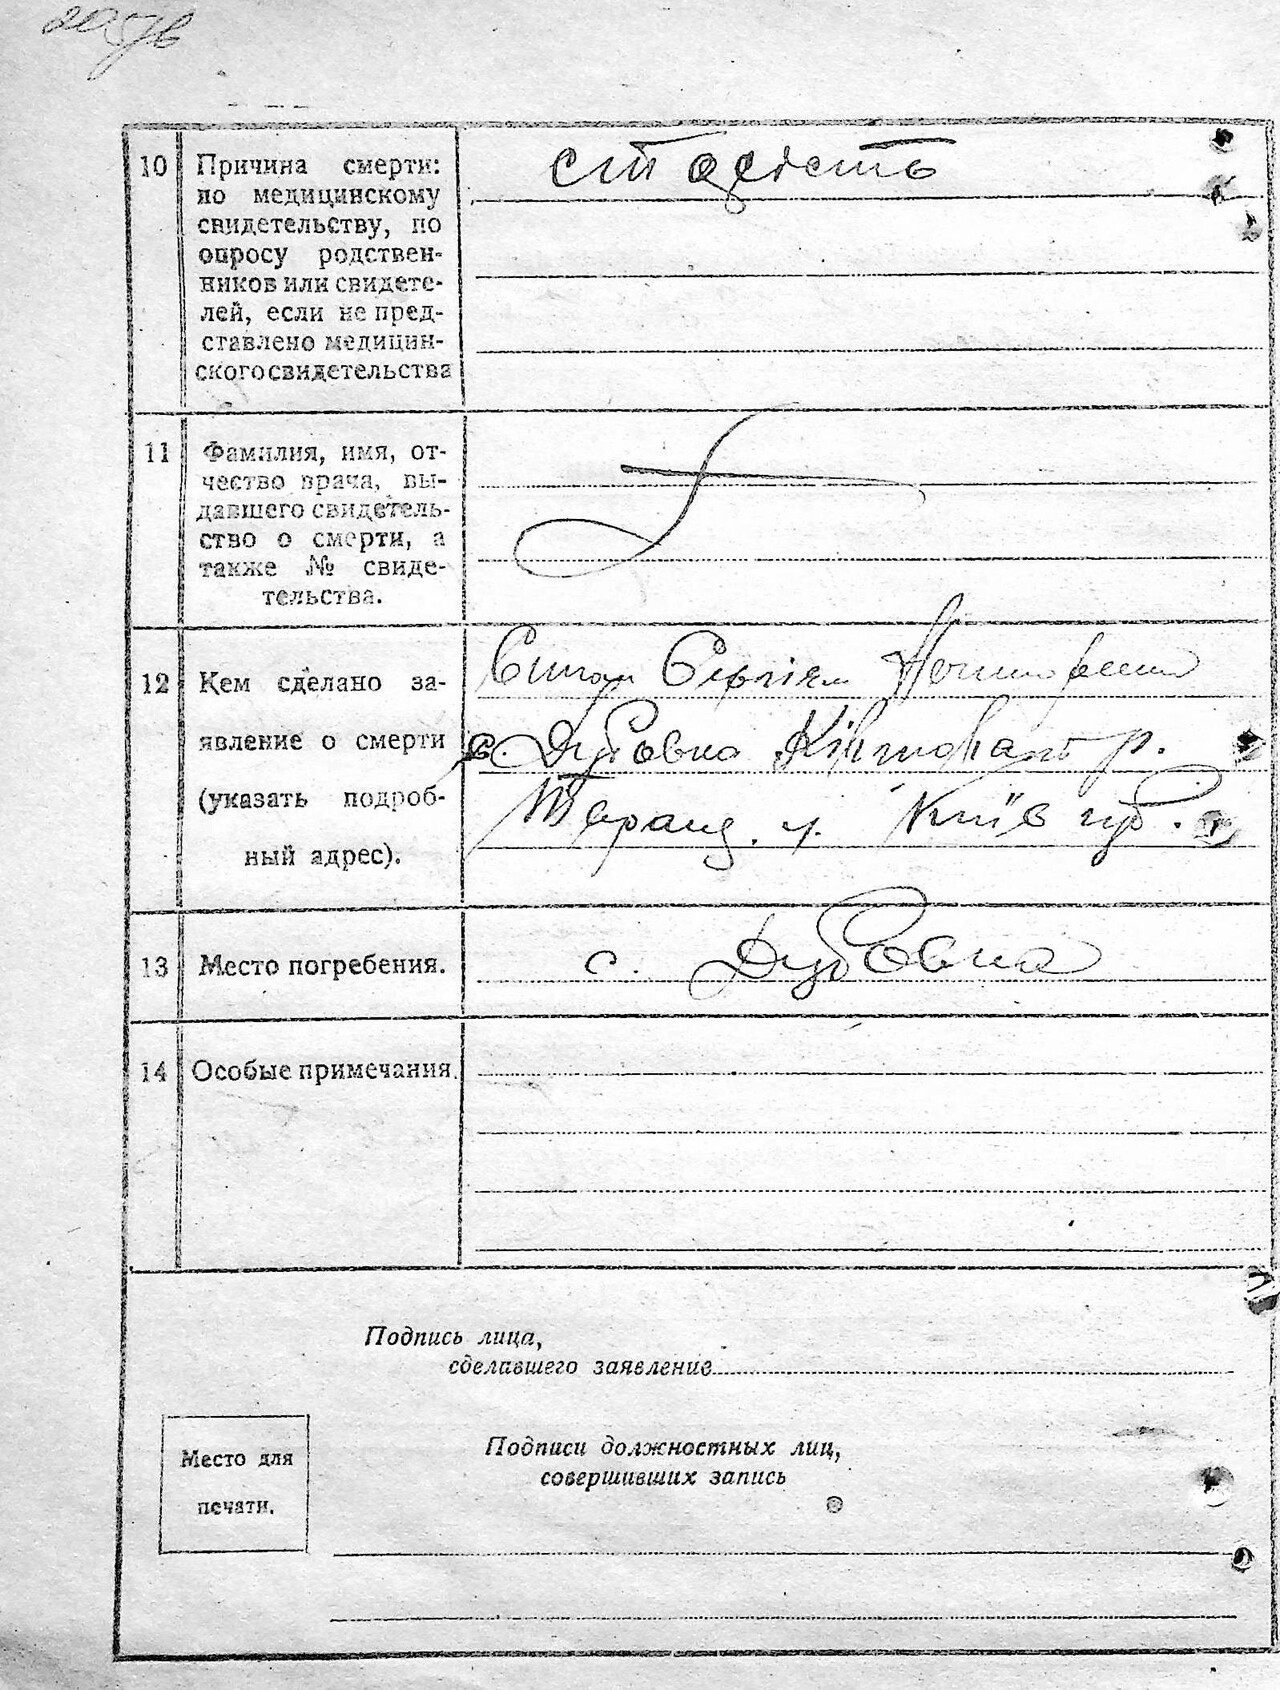 10 Причина смерти:
по медицинскому
свидетельству, по
опросу родствен-
ников или свидете-
лей, если не пред-
ставлено медицин-
ского свидетельства
старість
11 Фамилия, имя, от-
чество врача, вы-
давшего свидетель-
ство о смерти, а
также № свиде-
тельства.
12 Кем сделано за-
явление о смерти
(указать подроб-
ный адрес).
Сергієм
с. Дубовка р.
Таращ. Київ губ.
13 Место погребения.
с. Дубовка
14 Особые примечания.
Подпись лица,
сделавшего заявление
Место для
печати.
Подписи должностных лиц,
совершивших запись